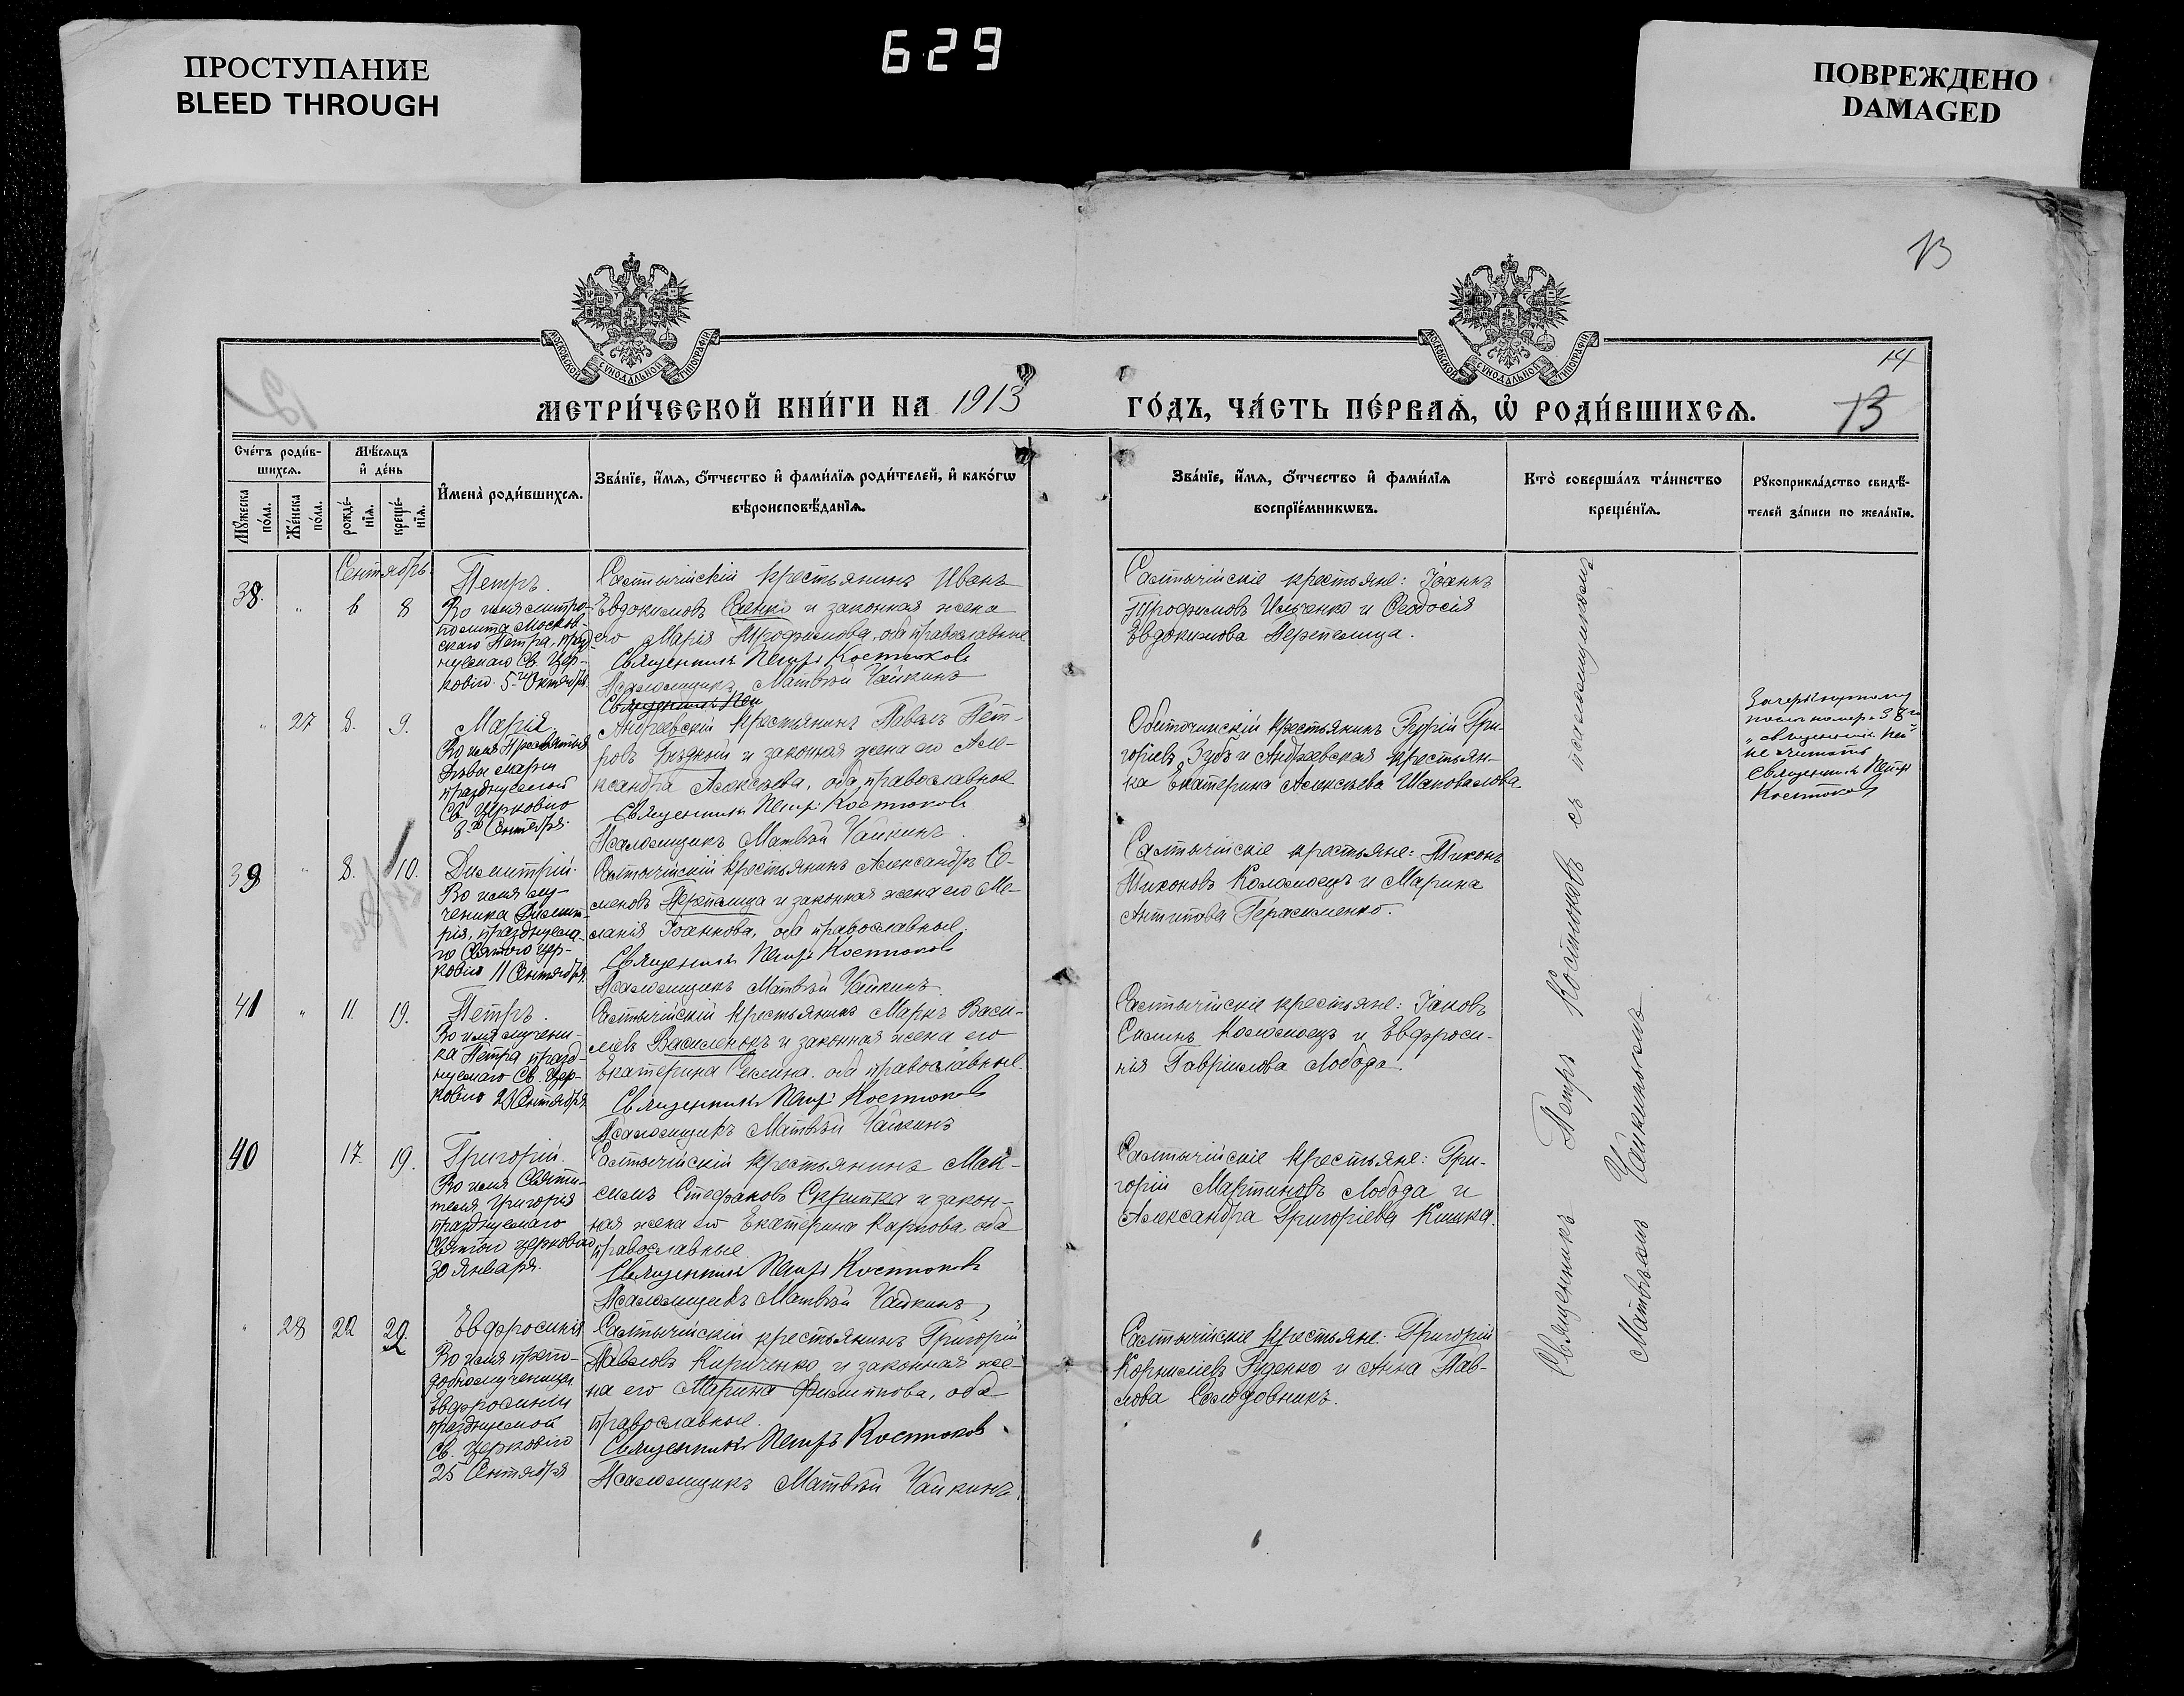 ПРОСТУПАНИЕ
BLEED THROUGH
629
ПОВРЕЖДЕНО
DAMAGED
13
МОСКОВСКОЙ СУНОДАЛЬНОЙ ТИПОГРАФІИ
МОСКОВСКОЙ СУНОДАЛЬНОЙ ТИПОГРАФІИ
14
МЕТРИ́ЧЕСКОЙ КНИ́ГИ НА 1913
ГО́ДЪ, ЧА́СТЬ ПЕ́РВАѦ, Ѡ҆ РОДИ́ВШИХСѦ.
13
Сче́тъ роди́в-
шихсѧ.
Мѣ́сѧцъ
и҆ де́нь
Мꙋ́жеска по́ла.
Же́нска по́ла.
рожде́-нїѧ.
креще́-нїѧ.
И҆мена̀ роди́вшихсѧ.
Зва́нїе, и҆́мѧ, ѻ҆́тчество и҆ фами́лїѧ роди́телей, и҆ како́гѡ
вѣроисповѣ́данїѧ.
Зва́нїе, и҆́мѧ, ѻ҆́тчество и҆ фами́лїѧ
воспрїе́мникѡвъ.
Кто̀ соверша́лъ та́инство
креще́нїѧ.
Рꙋкоприкла́дство свидѣ́-
телей за́писи по жела́нїю.
Сентябрь.
38. " 6 8
Петръ.
Во имя митро-
полита Москов-
скаго Петра, празд-
нуемаго Св. Цер-
ковію 5го Октября
Салтычійскій крестьянинъ Иванъ
Евдокимовъ Саенко и законная жена
его Марія Трофимова, оба православные
Священникъ Петръ Костюковъ
Псаломщикъ Матвѣй Чайкинъ
Священникъ Пет
Салтычійскіе крестьяне: Іоаннъ
Трофимовъ Ильченко и Ѳеодосія
Евдокимова Перепелица.
" 27 8. 9.
Марія
Во имя Пресвятыя
Дѣвы Маріи
празднуемой
Св. Церковію
8го Сентября.
Андреевскій крестьянинъ Павелъ Пет-
ровъ и законная жена его Але-
ксандра Алексѣева, оба православные
Священникъ Петръ Костюковъ
Псаломщикъ Матвѣй Чайкинъ
Обиточинскій крестьянинъ Гри-
горіевъ Зубъ и Андреевская крестьян-
ка Екатерина Алексѣева Шаповалова.
Зачеркнутому
после номера 38го
"священникъ Пет"
не читать
Священникъ Петръ
Костюковъ
39 " 8. 10.
Димитрій.
Во имя му-
ченика Димит-
рія, празднуема-
го Святою Цер-
ковію 11 Сентября.
Салтычійскій крестьянинъ Александръ Се-
меновъ Перепелица и законная жена его Ме-
ланія Іоаннова, оба православные.
Священникъ Петръ Костюковъ
Псаломщикъ Матвѣй Чайкинъ.
Салтычійскіе крестьяне: Тихонъ
Тихоновъ Коломоецъ и Марина
Антипова Герасименко.
41 " 11. 19.
Петръ.
Во имя мучени-
ка Петра празд-
нуемаго Св. Цер-
ковію 23 Сентября.
Салтычійскій крестьянинъ Маркъ Васи-
льевъ Василенокъ и законная жена его
Екатерина Семина. оба православные.
Священникъ Петръ Костюковъ
Псаломщикъ Матвѣй Чайкинъ
Салтычійскіе крестьяне: Іаковъ
Симинъ Коломоецъ и Евфроси-
нія Гавріилова Лобода.
40 17. 19.
Григорій.
Во имя Святи-
теля Григорія
празднуемаго
Святой церковію
30 Января.
Салтычійскій крестьянинъ Мак-
симъ Стефановъ Скрипка и закон-
ная жена его Екатерина Карпова, оба
православные.
Священникъ Петръ Костюковъ
Псаломщикъ Матвѣй Чайкинъ
Салтычійскіе крестьяне: Гри-
горій Мартиновъ Лобода и
Александра Григоріева Кишка.
" 28 22 22.
Евфросинія
Во имя препо-
добномученицы
Евфросиніи
празднуемой
Св. Церковію
25 Сентября
Салтычійскій крестьянинъ Григорій
Павловъ Кириченко и законная же-
на его Марина Филиппова, оба
православные.
Священникъ Петръ Костюковъ
Псаломщикъ Матвѣй Чайкинъ.
Салтычійскіе крестьяне: Григорій
Корниліевъ Руденко и Анна Пав-
лова Солодовникъ.
Священникъ Петръ Костюковъ съ псаломщикомъ
Матвѣемъ Чайкинымъ.